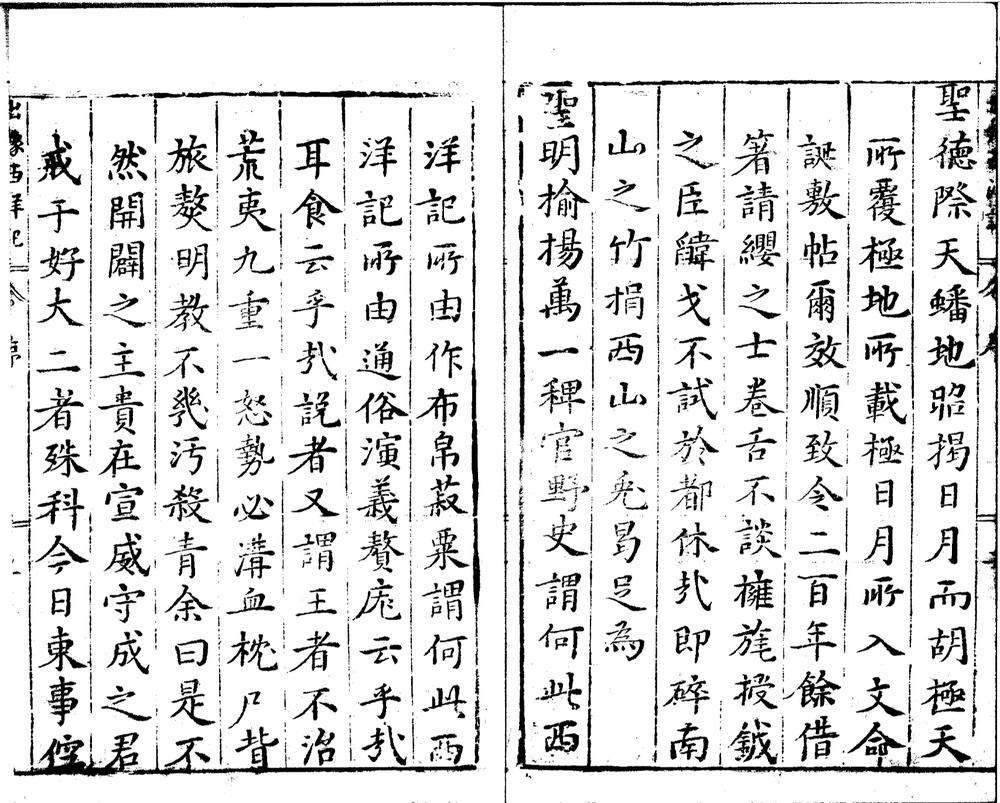 聖德際天蟠地昭揭日月而胡極天
所覆極地所載極日月所入文命
誕敷帖爾效順致今二百年餘借
箸請纓之士卷舌不談擁旄授鉞
之臣韡戈不試於都休㢤即碎南
山之竹捐西山之兎曷足為
聖明揄揚萬一稗官野史謂何此西
洋記所由作布帛菽粟謂何此西
洋記所由通俗演義贅庬云乎㢤
耳食云乎㢤說者又謂王者不治
荒夷九重一怒勢必溝血枕尸背
旅獒明教不幾污殺青余曰是不
然開闢之主貴在宣威守成之君
戒于好大二者殊科今日東事倥
出像西洋記
序